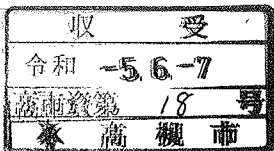 収 受
令和 -5.6.-7
第 18 号
高槻市